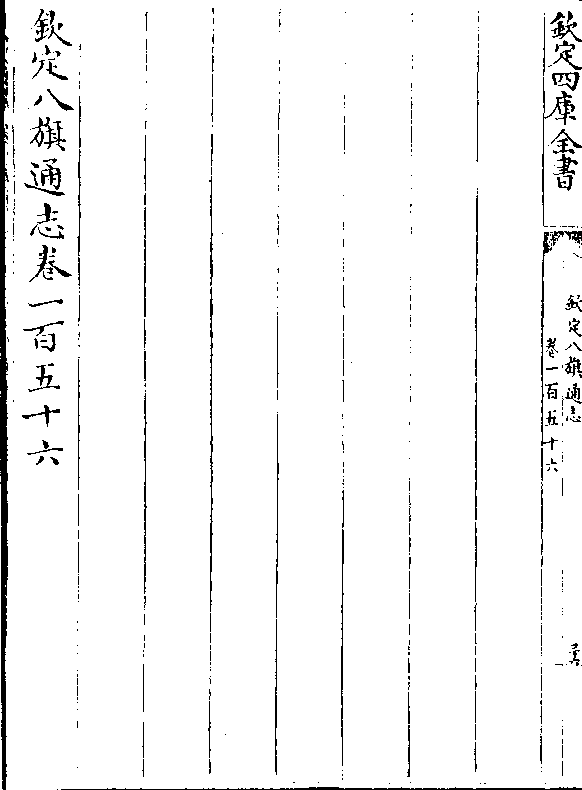 欽定四庫全書
欽定八旗通志
卷一百五十六
欽定八旗通志卷一百五十六